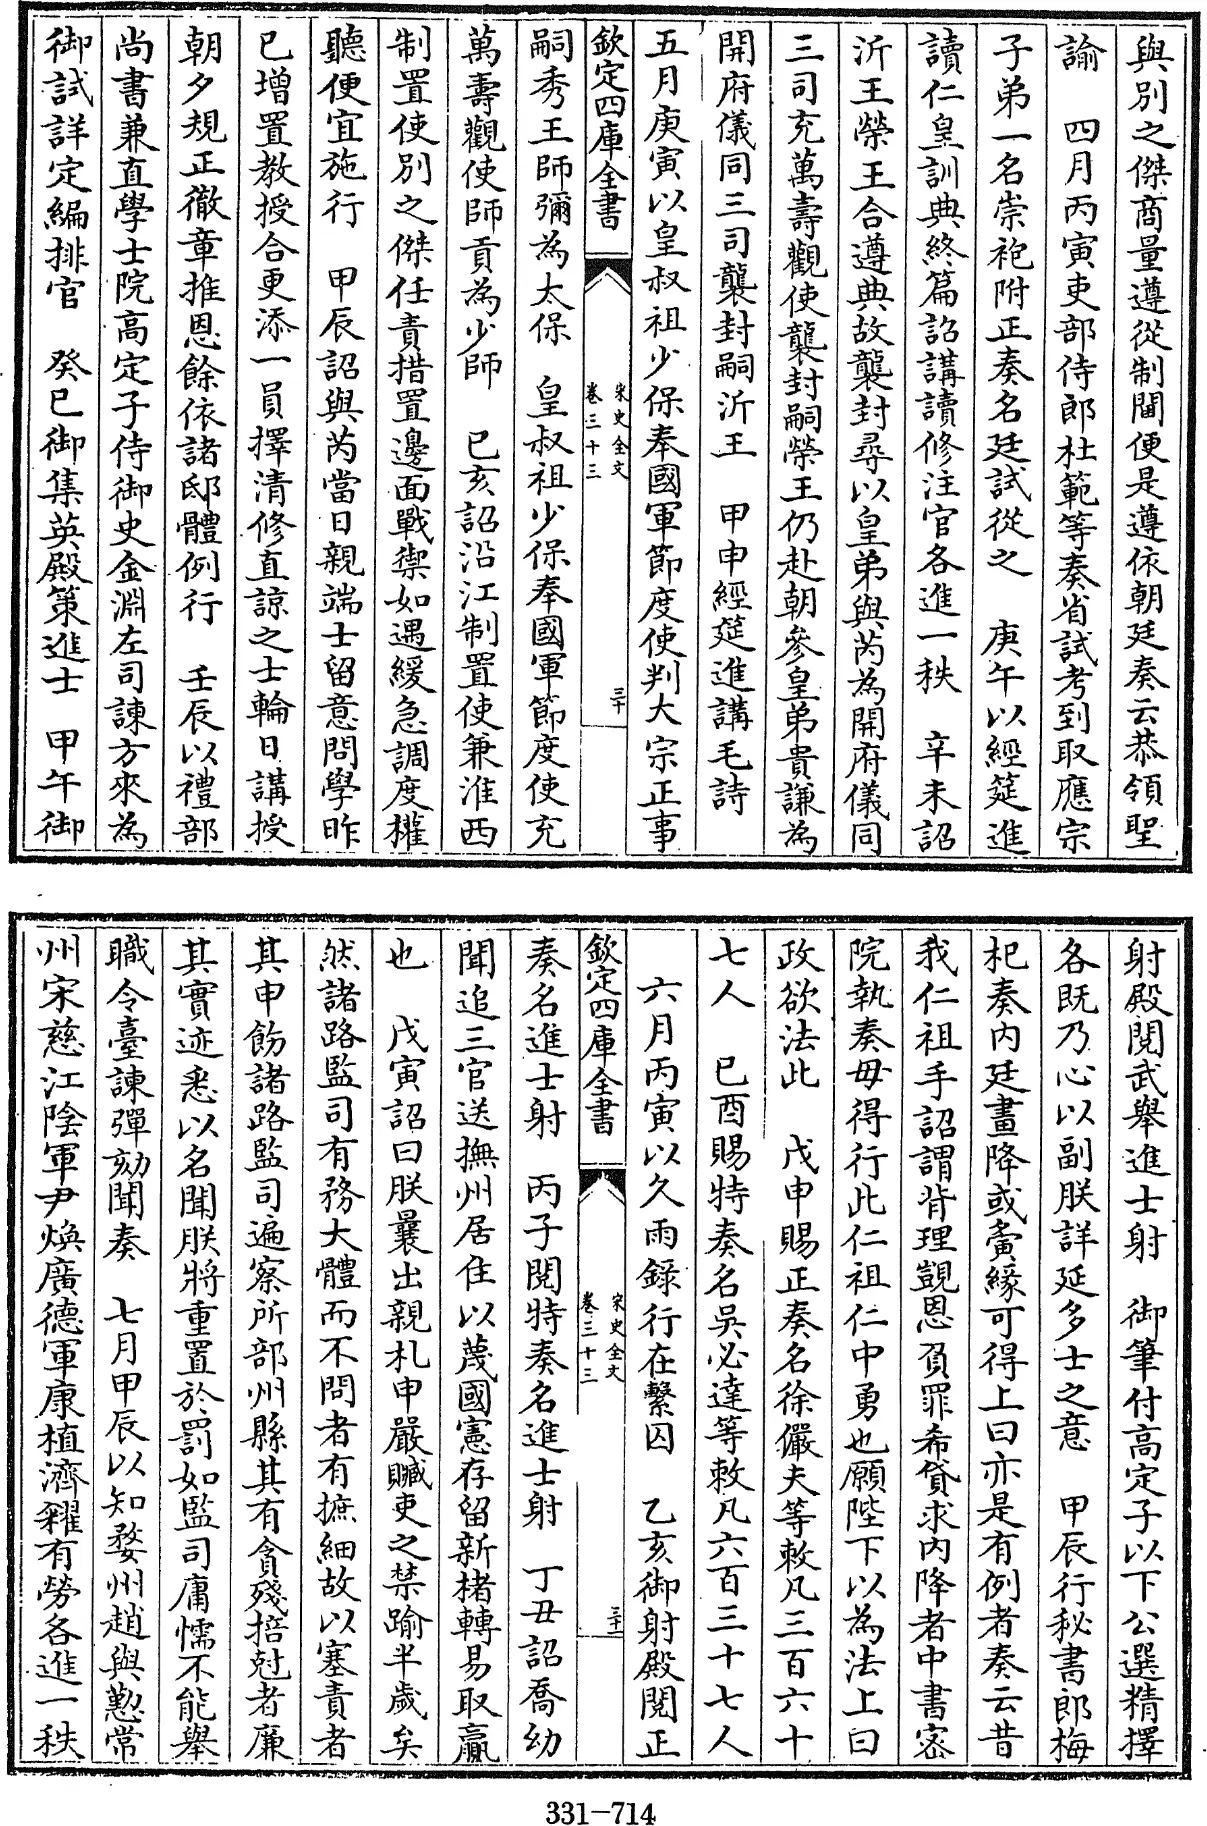 與別之傑商量遵從制閫便是遵依朝廷奏云恭領聖
諭　四月丙寅吏部侍郎杜範等奏省試考到取應宗
子弟一名崇袍附正奏名廷試從之　庚午以經筵進
讀仁皇訓典終篇詔講讀修注官各進一秩　辛未詔
沂王榮王合遵典故襲封尋以皇弟與芮為開府儀同
三司充萬壽觀使襲封嗣榮王仍赴朝參皇弟貴謙為
開府儀同三司襲封嗣沂王　甲申經筵進講毛詩
五月庚寅以皇叔祖少保奉國軍節度使判大宗正事
欽定四庫全書
宋史全文
卷三十三
三十
嗣秀王師彌為太保　皇叔祖少保奉國軍節度使充
萬壽觀使師貢為少師　已亥詔沿江制置使兼淮西
制置使別之傑任責措置邊面戰禦如遇緩急調度權
聽便宜施行　甲辰詔與芮當日親端士留意問學昨
已增置教授合更添一員擇清修直諒之士輪日講授
朝夕規正徹章推恩餘依諸邸體例行　壬辰以禮部
尚書兼直學士院高定子侍御史金淵左司諫方來為
御試詳定編排官　癸巳御集英殿策進士　甲午御
射殿閱武舉進士射　御筆付高定子以下公選精擇
各既乃心以副朕詳延多士之意　甲辰行秘書郎梅
杞奏內廷畫降或夤緣可得上曰亦是有例者奏云昔
我仁祖手詔謂背理覬恩負罪希貸求內降者中書密
院執奏毋得行此仁祖仁中勇也願陛下以為法上曰
政欲法此　戊申賜正奏名徐儼夫等敕凡三百六十
七人　已酉賜特奏名吳必達等敕凡六百三十七人
六月丙寅以久雨錄行在繫囚　乙亥御射殿閱正
欽定四庫全書
宋史全文
卷三十三
三十一
奏名進士射　丙子閱特奏名進士射　丁丑詔喬幼
聞追三官送撫州居住以蔑國憲存留新楮轉易取贏
也　戊寅詔曰朕曩出親札申嚴贓吏之禁踰半歲矣
然諸路監司有務大體而不問者有摭細故以塞責者
其申飭諸路監司遍察所部州縣其有貪殘掊尅者廉
其實迹悉以名聞朕將重置於罰如監司庸懦不能舉
職令臺諫彈劾聞奏　七月甲辰以知婺州趙與懃常
州宋慈江陰軍尹煥廣德軍康植濟糴有勞各進一秩
331-714